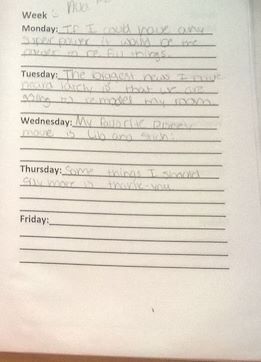 Week
Monday: If I could have any
super power it would be the
power to re fill things.
Tuesday: The biggest news I have
heard lately is that we are
going to remodel my room.
Wednesday: My favorite Disney
movie is Lilo and Stich.
Thursday: Some things I should
say more is thank-you
Friday: